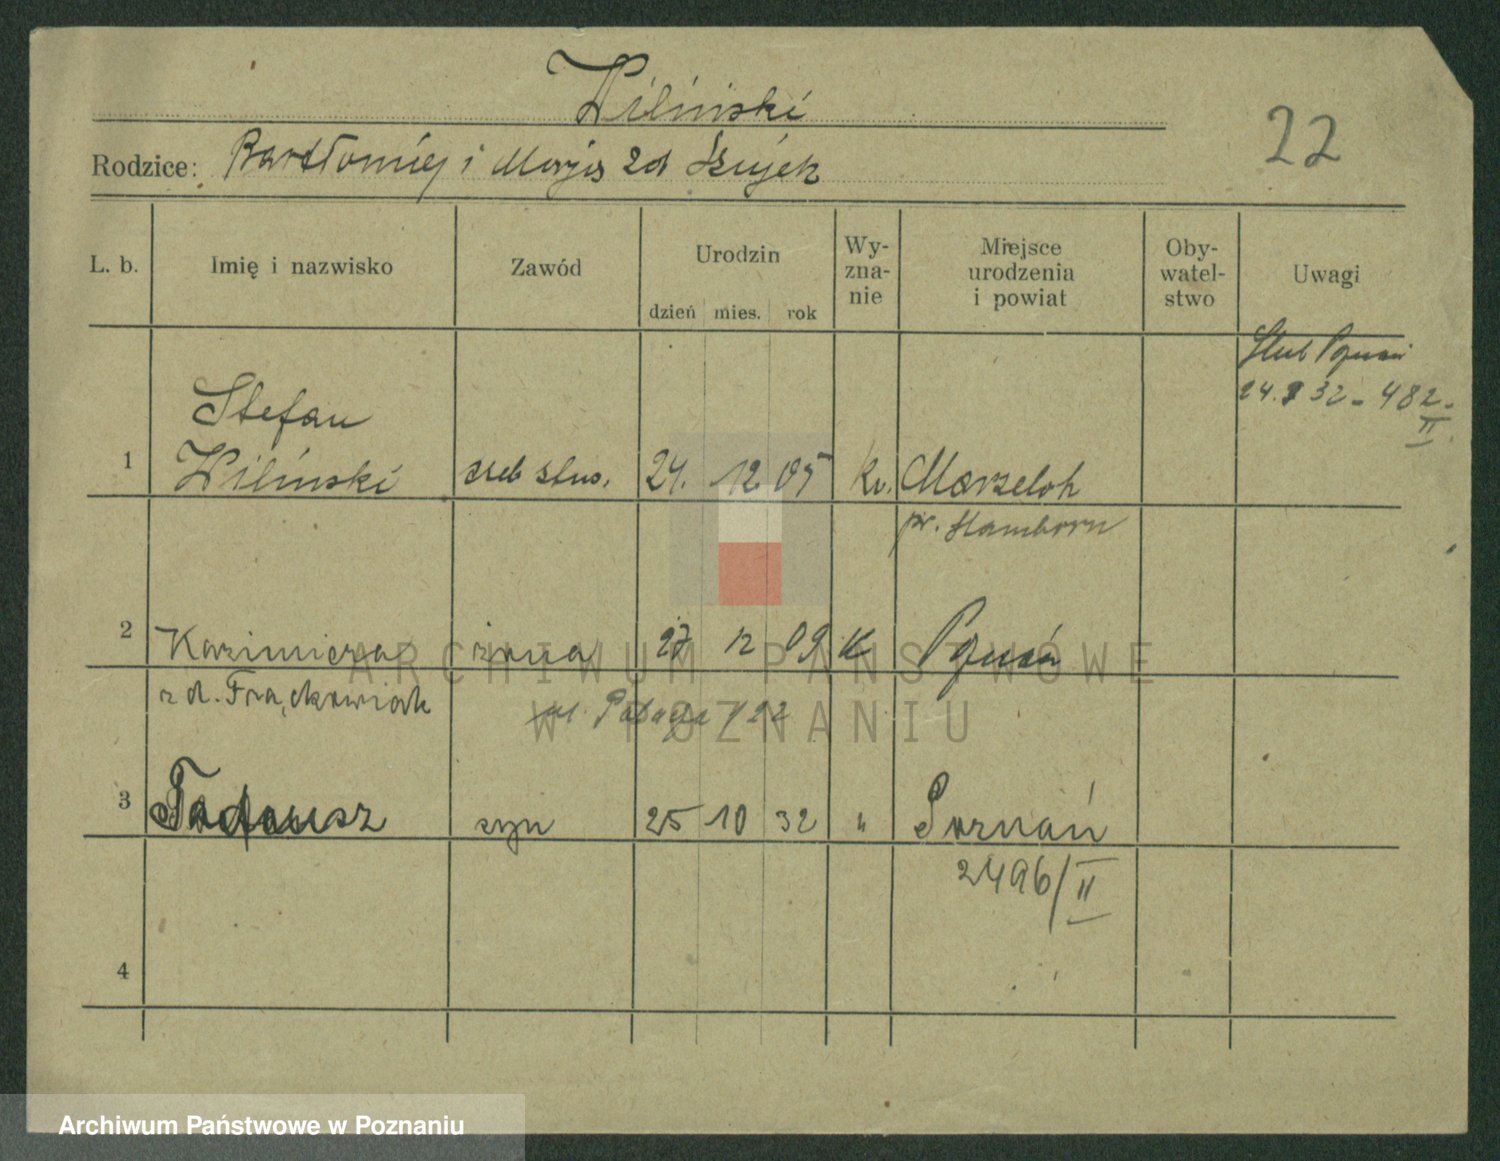 Wiliński
22
Rodzice: Bartłomiej i Marja zd
L. b. Imię i nazwisko Zawód Urodzin Wy- Miejsce Oby- Uwagi
zna- urodzenia watel-
dzień mies. rok nie i powiat stwo
Ślub Poznań
24. 32 - 482
II.
Stefan
1 Wiliński 24. 12 05 Marxeloh
pr. Hamborn
2 Kazimiera żona 27 12 09 K Poznań
zd. Frąckowiak
ARCHIWUM PAŃSTWOWE
W POZNANIU
3 Tadeusz syn 25 10 32 " Poznań
2496/II
4
Archiwum Państwowe w Poznaniu